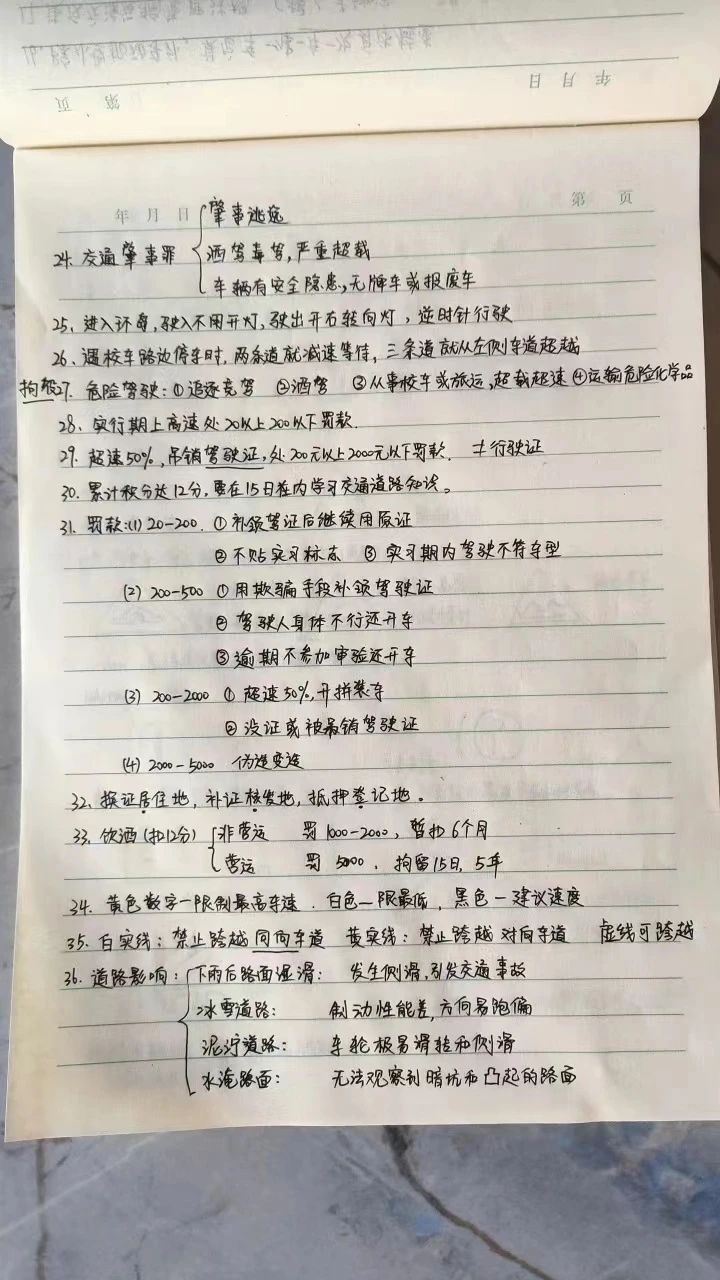 年 月 日
第 页
年 月 日 第 页
肇事逃逸
24. 交通肇事罪 酒驾毒驾,严重超载
车辆有安全隐患,无牌车或报废车
25、进入环岛,驶入不用开灯,驶出开右转向灯,逆时针行驶
26、遇校车路边停车时,两条道就减速等待,三条道就从左侧车道超越
拘役27. 危险驾驶:①追逐竞驾 ②酒驾 ③从事校车或旅运,超载超速 ④运输危险化学品
28、实行期上高速处20以上200以下罚款.
29. 超速50%,吊销驾驶证,处200元以上2000元以下罚款. ≠行驶证
30. 累计积分达12分,要在15日在内学习交通道路知识。
31. 罚款:(1) 20-200. ①补领驾证后继续用原证
②不贴实习标志 ③实习期内驾驶不符车型
(2) 200-500 ①用欺骗手段补领驾驶证
②驾驶人身体不行还开车
③逾期不参加审验还开车
(3) 200-2000 ①超速50%,开拼装车
②没证或被吊销驾驶证
(4) 2000-5000 伪造变造
32、换证居住地,补证核发地,抵押登记地。
33. 饮酒(扣12分) 非营运 罚1000-2000,暂扣6个月
营运 罚5000,拘留15日,5年
34. 黄色数字一限制最高车速.白色一限最低,黑色一建议速度
35. 白实线:禁止跨越同向车道 黄实线:禁止跨越对向车道 虚线可跨越
36. 道路影响:下雨后路面湿滑: 发生侧滑,引发交通事故
冰雪道路: 制动性能差,方向易跑偏
泥泞道路: 车轮极易滑转和侧滑
水淹路面: 无法观察到暗坑和凸起的路面